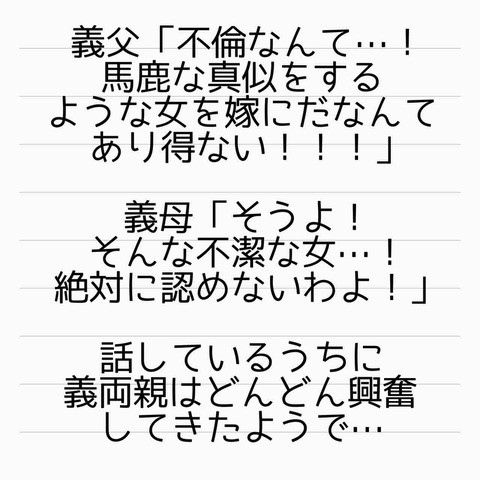 義父「不倫なんて…！
馬鹿な真似をする
ような女を嫁にだなんて
あり得ない！！！」
義母「そうよ！
そんな不潔な女…！
絶対に認めないわよ！」
話しているうちに
義両親はどんどん興奮
してきたようで…